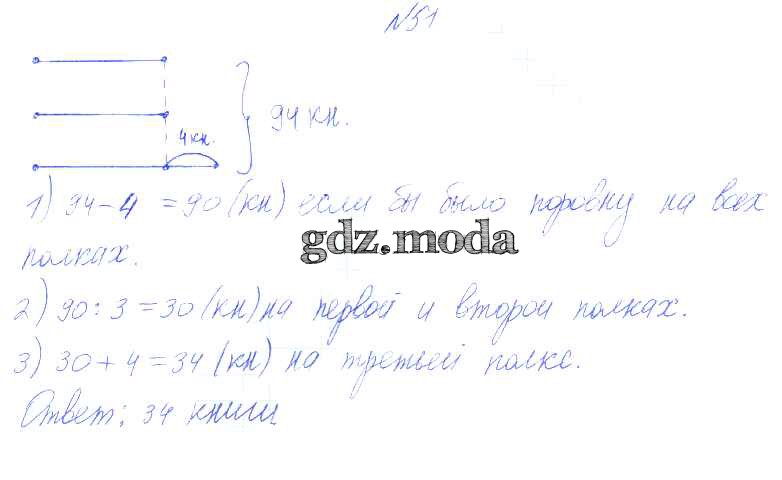 №51
4 кн.
94 кн.
1) 94-4 = 90 (кн) если бы было поровну на всех
gdz.moda
полках.
2) 90:3=30 (кн) на первой и второй полках.
3) 30+4=34 (кн) на третьей полке.
Ответ: 34 книги